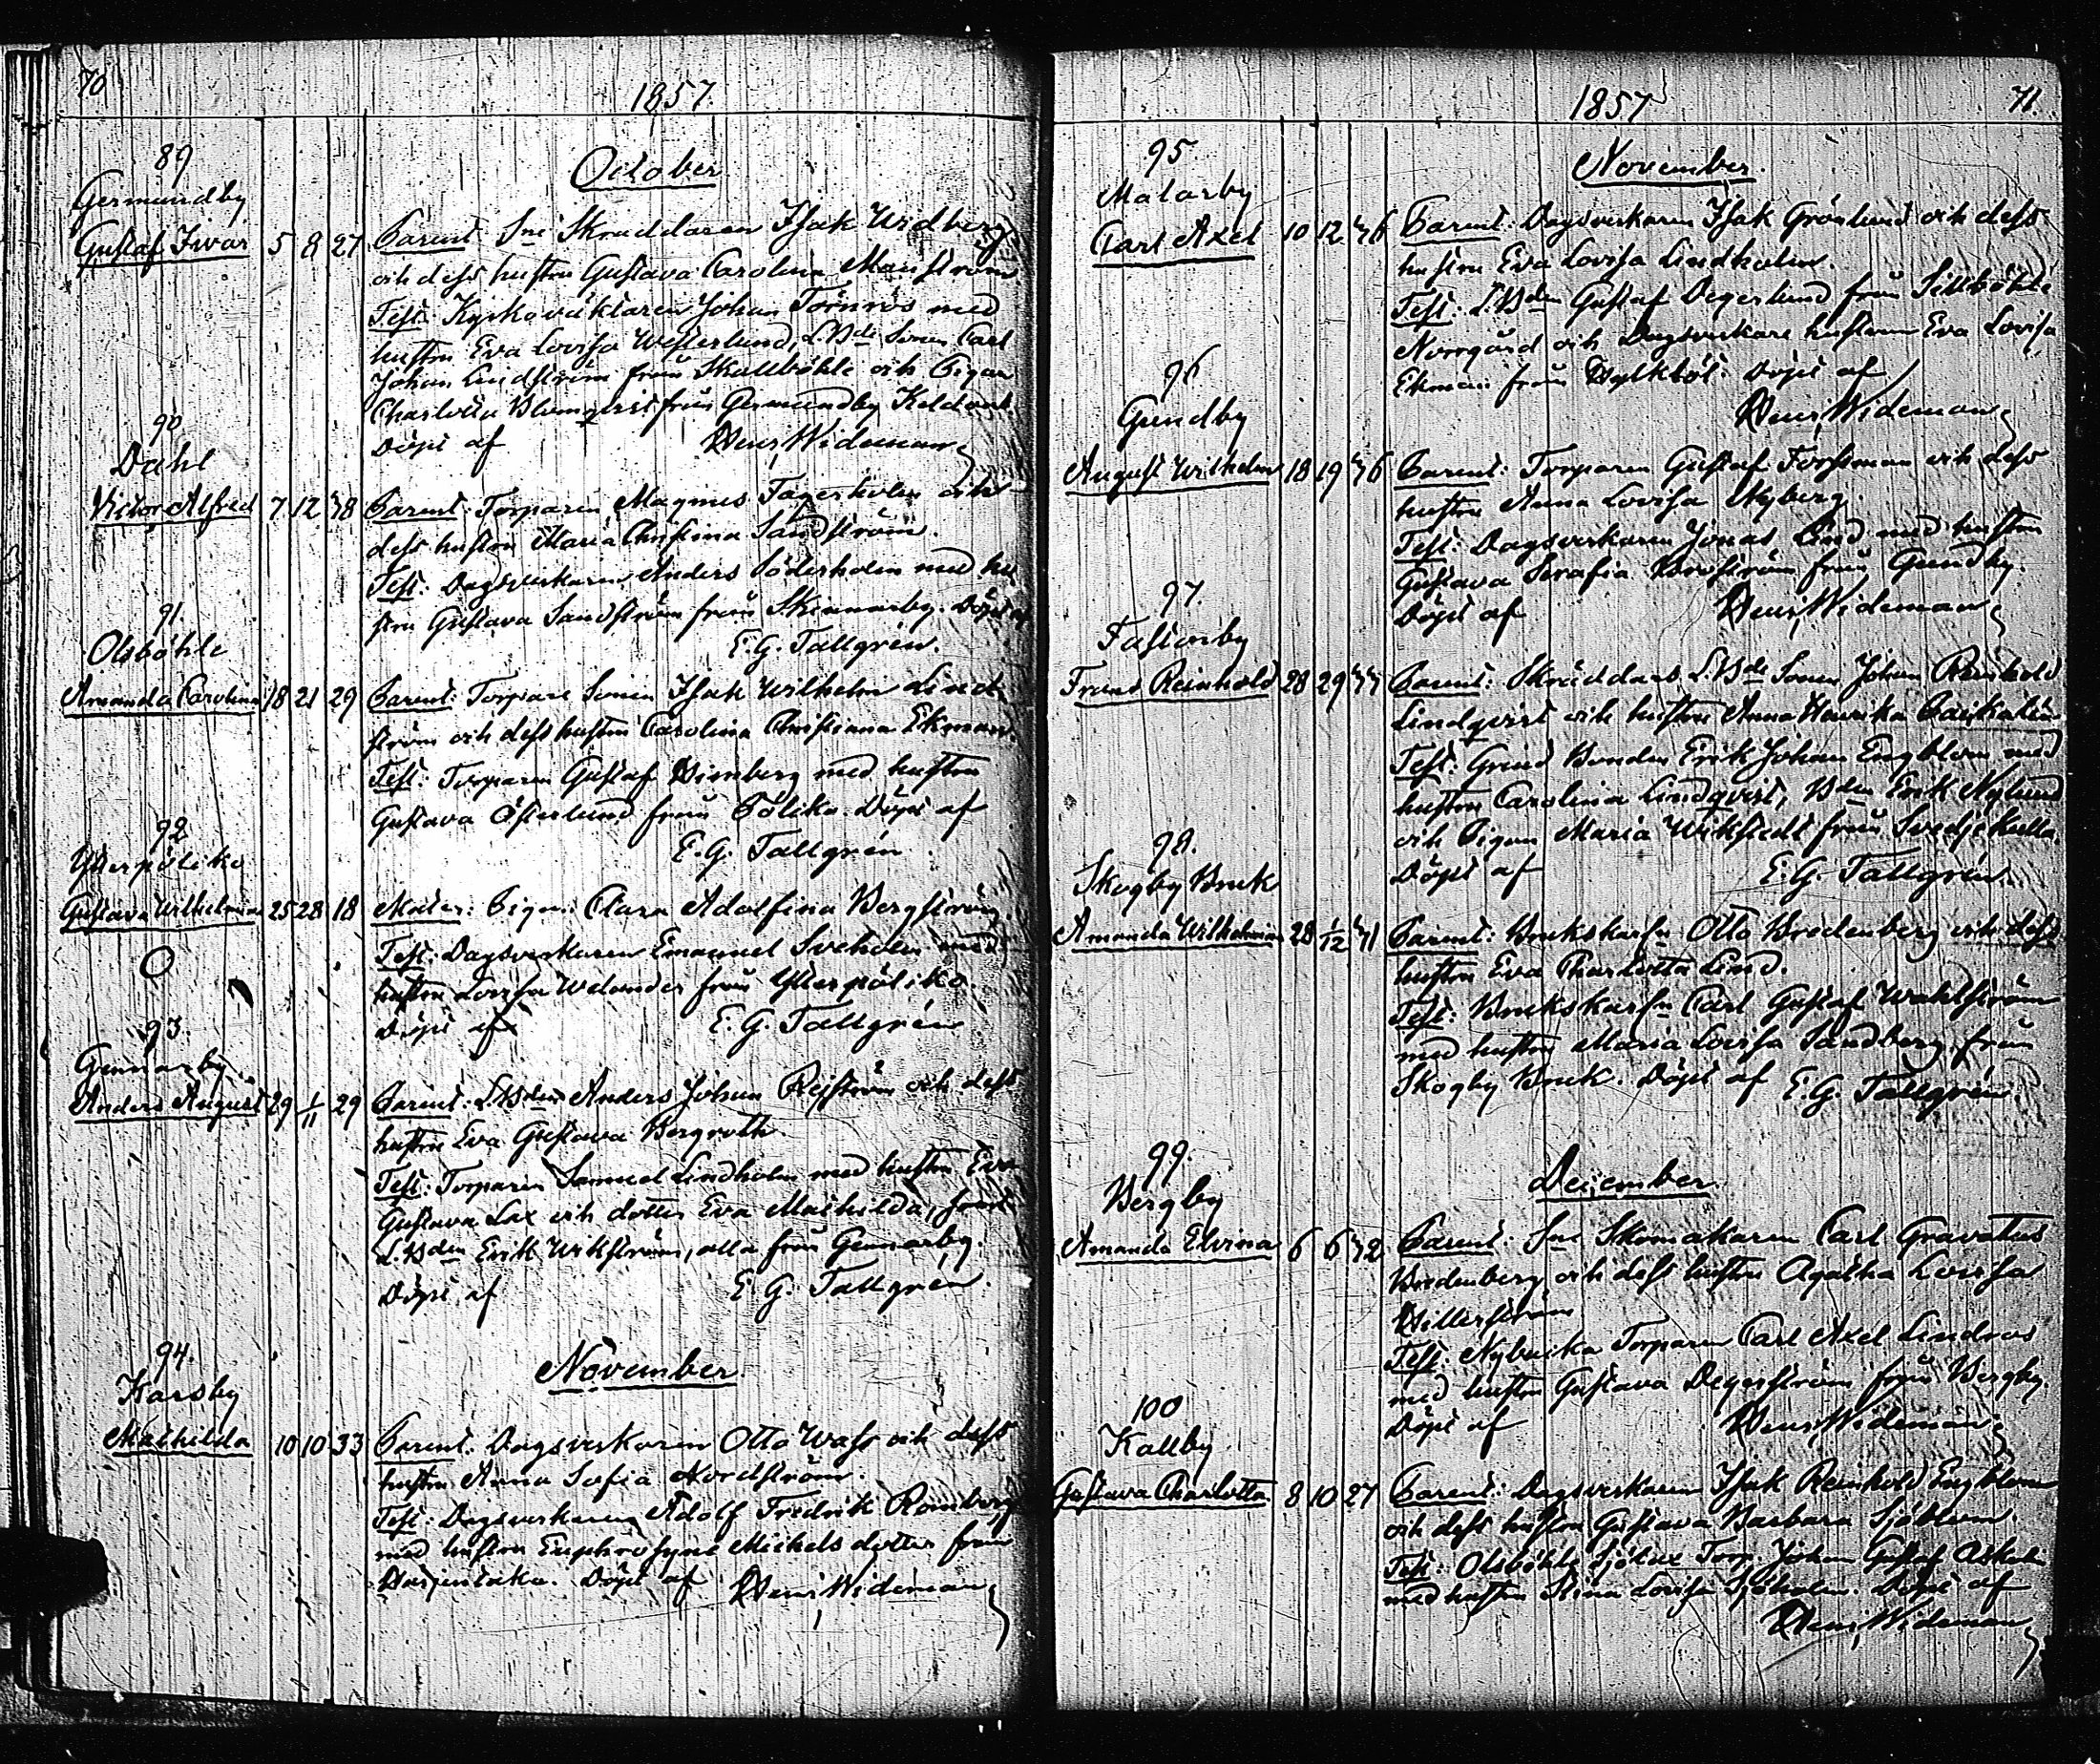 70
1857.
October
89
Germundby
Gustaf Ivar 5 8 27
Parent: Sne Skräddaren Isak Widberg
och dess hustru Gustava Carolina Manström
Test: Kyrkoväktaren Johan Törnros med
hustru Eva Lovisa Westerlund, L.Bde Sonen Carl
Johan Lindström från Skallböhle och Pigan
Charlotta Blomqvist från Germundby
Döpt af Henr. Wideman
90
Dahl
Victor Alfred 7 12 38
Parent: Torparen Magnus Fagerholm och
dess hustru Maria Christina Sandström.
Test: Dagsverkaren Anders Söderholm med hu
stru Gustava Sandström från Skinnarby. Döpt af
E. G. Tallgrén.
91
Olsböhle
Amanda Carolina 18 21 29
Parent: Torpare Sonen Isak Wilhelm Lind
ström och dess hustru Carolina Christiana Ekman.
Test: Torparen Gustaf Himberg med hustru
Gustava Österlund från Pölika. Döpt af
E. G. Tallgrén
92
Ytterpölika
Gustava Wilhelmina 25 28 18
Mater: Pigan Clara Adolfina Bergström
Test: Dagsverkaren Emanuel Sveholm med
hustru Lovisa Welander från Ytterpölika.
Döpt af E. G. Tallgrén
93.
Gennarby
Anders August 29 1/11 29
Parent: L.Bden Anders Johan Rejström och dess
hustru Eva Gustava Bergroth.
Test: Torparen Samuel Lindholm med hustru Eva
Gustava Lax och dotter Eva Mathilda, samt
L.Bden Erik Wikström, alla från Gennarby.
Döpt af E. G. Tallgrén.
November.
94.
Karsby
Mathilda 10 10 33
Parent. Dagsverkaren Otto Wass och dess
hustru Anna Sofia Nordström.
Test: Dagsverkaren Adolf Fredrik Romberg
med hustru Euphrosyne Michelsdotter från
Döpt af Henr. Wideman
1857
71.
November.
95.
Malarby
Carl Axel 10 12 36
Parent: Dagsverkaren Isak Grönlund och dess
hustru Eva Lovisa Lindholm.
Test: L.Bden Gustaf Degerlund från Sillböhle
Norrgård och Dagsverkare hustrun Eva Lovisa
Ekman från Döpt af
Henr. Wideman
96
Gundby
August Wilhelm 18 19 36
Parent: Torparen Gustaf Forsman och dess
hustru Anna Lovisa Nyberg.
Test: Dagsverkaren Jonas Lind med hustru
Gustava Serafia från Gundby.
Döpt af Henr. Wideman
97.
Fastarby
Frans Reinhold 28 29 37
Parent: Skräddars L.Bde Sonen Johan Reinhold
Lindqvist och hustru Anna Henrika
Test: Grind Bonden Erik Johan Engblom med
hustru Carolina Lindqvist, Bden Erik Nylund
och Pigan Maria Wikstedt från Svedjekulla
Döpt af E. G. Tallgrén.
98.
Skogby Bruk
Amanda Wilhelmina 28 1/12 31
Parent: Brukskarln Otto Bredenberg och dess
hustru Eva Charlotta Lind.
Test: Brukskarln Carl Gustaf Wahlström
med hustru Maria Lovisa Sandberg från
Skogby Bruk. Döpt af E. G. Tallgrén.
December
99.
Bergby
Amanda Elvina 6 6 32
Parent: Sne Skomakaren Carl Gravatus
Bredenberg och dess hustru Agatha Lovisa
Hillerström
Test: Nybacka Torparen Carl Axel Lindroos
med hustru Gustava Degerström från Bergby.
Döpt af Henr. Wideman
100
Kallby
Gustava Charlotta 8 10 27
Parent: Dagsverkaren Isak Reinhold Engblom
och dess hustru Gustava Barbara Sjöblom.
Test: Olsböhle Sjölax Torp. Johan Gustaf
med hustru Stina Lovisa Sjöholm. Döpt af
Henr. Wideman